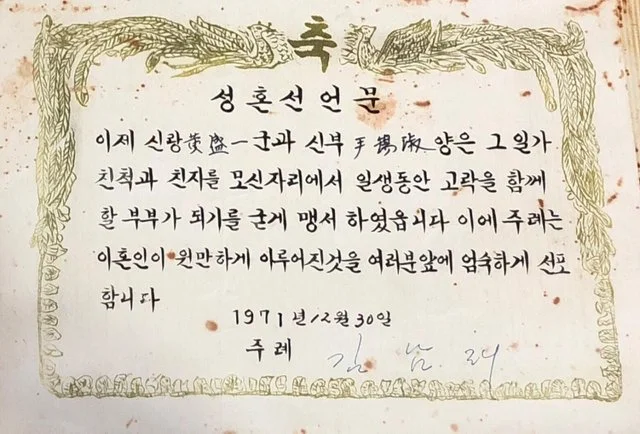 축
성혼선언문
이제 신랑黃盛一군과 신부 양은 그 일가
친척과 친지를 모신자리에서 일생동안 고락을 함께
할 부부가 되기를 굳게 맹서 하였읍니다 이에 주례는
이혼인이 원만하게 이루어진것을 여러분앞에 엄숙하게 선포
합니다
1971년 12월 30일
주례 김남